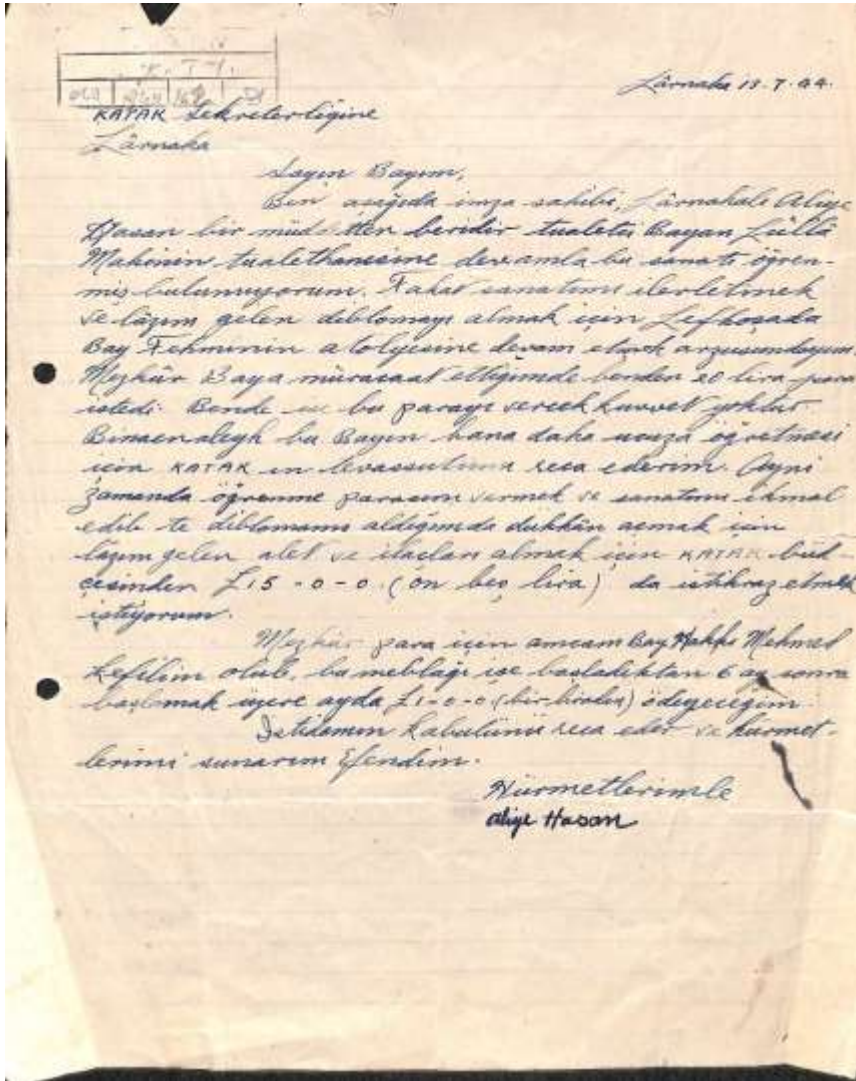 K.T.M.
Lârnaka 13.7.44.
KATAK Sekreterliğine
Lârnaka
Sayın Bayım,
Ben aşağıda imza sahibi, Lârnakalı Aliye
Hasan bir müddetten beridir tualetci Bayan
tualethanesine devamla bu sanatı öğren-
miş bulunuyorum. Fakat sanatımı ilerletmek
ve lâzım gelen diblomayı almak için Lefkoşada
Bay Fehminin atolyesine devam etmek arzusundayım.
Mezkûr Baya müracaat ettiğimde benden 20 lira para
istedi. Bende ise bu parayı verecek kuvvet yoktur.
Binaenaleyh bu Bayın bana daha ucuza öğretmesi
için KATAK ın tevassutunu reca ederim. Ayni
zamanda öğrenme parasını vermek ve sanatımı ikmal
edib te diblomamı aldığımda dukkân açmak için
lâzım gelen alet ve ilaçları almak için KATAK büd-
cesinden £15-0-0 (on beş lira) da istikraz etmek
istiyorum.
Mezkûr para için amcam Bay Hakkı Mehmed
kefilim olub, bu meblağı işe başladıktan 6 ay sonra
başlamak üzere ayda £1-0-0 (bir lira) ödeyeceğim.
İstidamın kabulünü reca eder ve hürmet-
lerimi sunarım Efendim.
Hürmetlerimle
Aliye Hasan